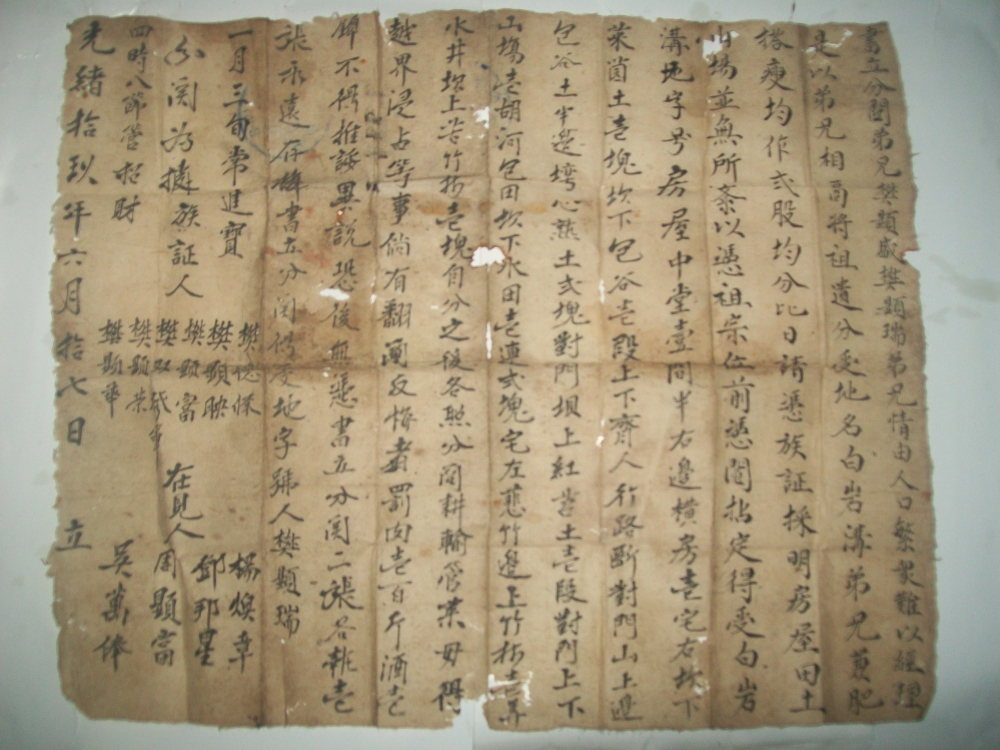 書立分關弟兄樊顯盛樊顯瑞弟兄情由人口繁衆難以經理
是以弟兄相商將祖遺分受地名白岩溝弟兄萁肥
搭瘦均作弍股均分比日請憑族証採明房屋田土
山場並無所紊以憑祖宗位前憑鬮拈定得受白岩
溝地字号房屋中堂壹間半右邊橫房壹宅右坎下
菜園土壱塊坎下包谷壱段上下齊人行路斷對門山上邊
包谷土半邊塆心熟土弍塊對門坝上紅苕土壱段對門上下
山塲壱胡河包田坎下水田壱連弍塊宅左慈竹邊上竹林壱
水井坎上苦竹林壱塊自分之後各照分關耕輸管業毋得
越界浸占等事倘有翻悔者罰肉壱百斤酒壱
不得推諉異説恐後無憑書立分関二張各執壱
張永遠存據書立分関得受地字號人樊顯瑞
一月三旬常進寶
分関為據族証人
樊顯映
樊顯富
樊顯榮
樊顯華
在見人
楊煥章
邱邦星
周顯富
吳萬俸
四時八節管招財
光緒拾玖年六月拾七日 立